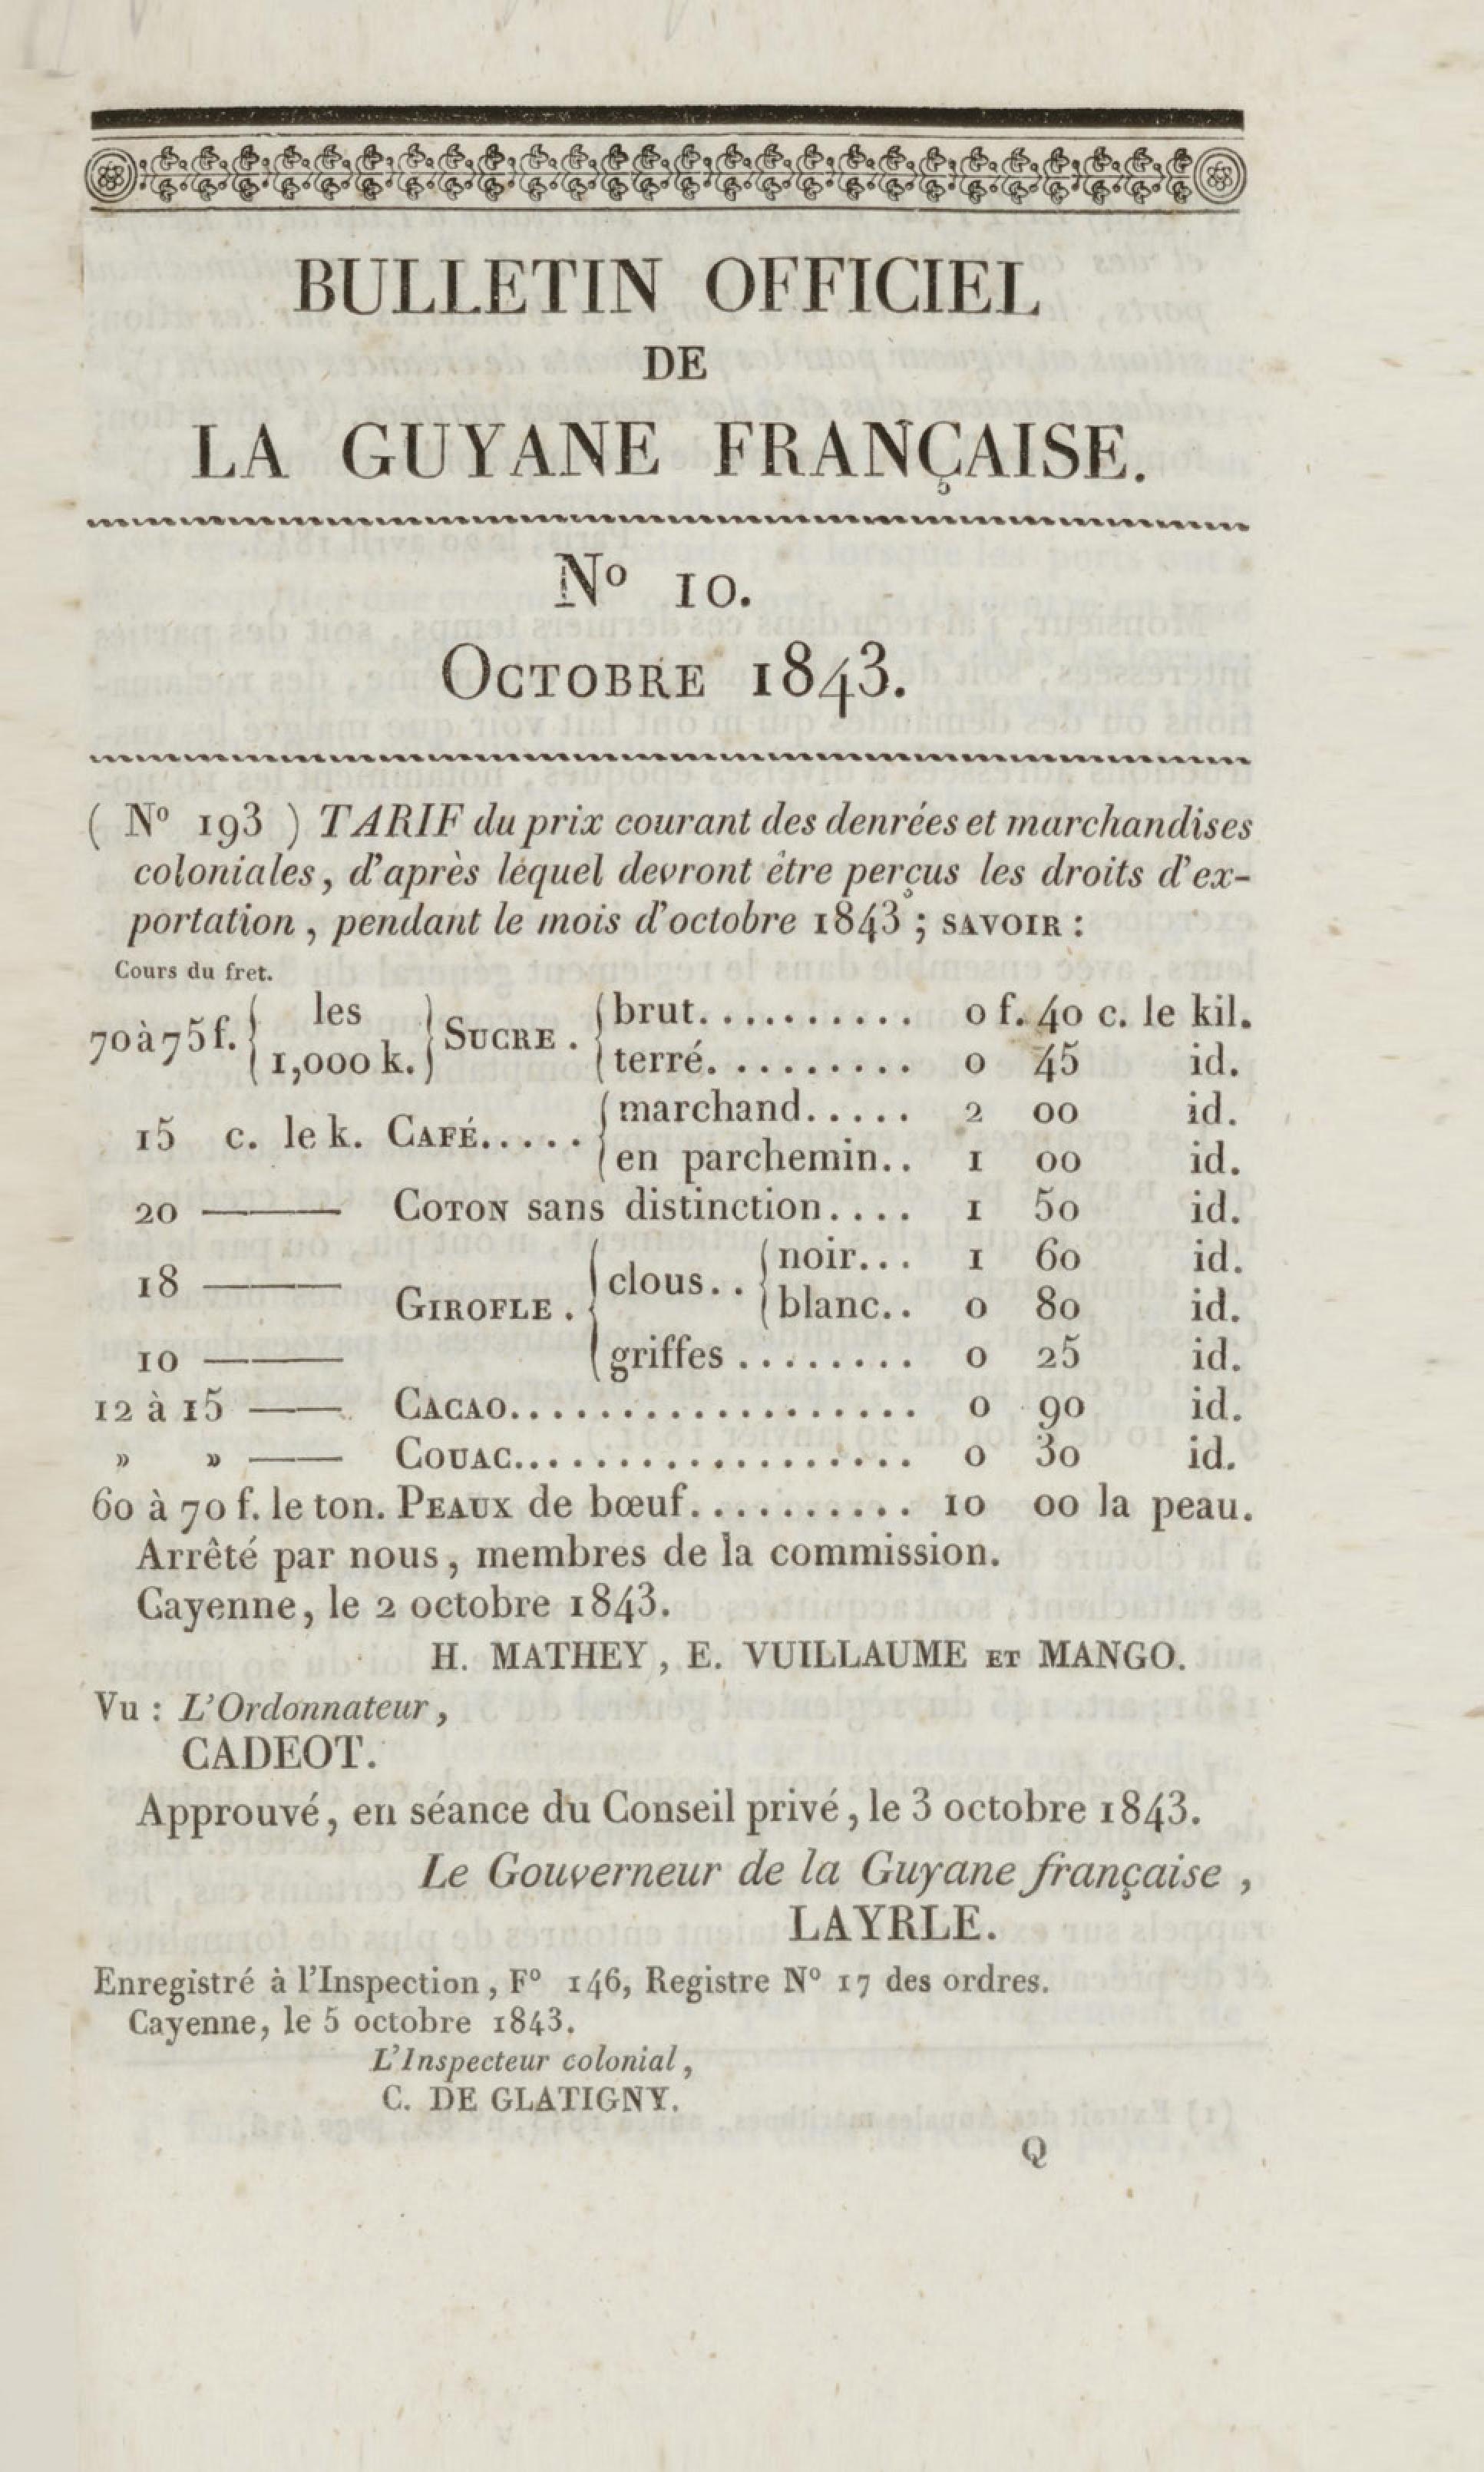 BULLETIN OFFICIEL
DE
LA GUYANE FRANÇAISE.
Nº 10.
OCTOBRE 1843.
( Nº 193 ) TARIF du prix courant des denrées et marchandises
coloniales, d'après lequel devront être perçus les droits d'ex-
portation, pendant le mois d'octobre 1843; SAVOIR :
Cours du fret.
70 à 75 f. { les 1,000 k. } SUCRE . { brut. . . . . . . . . . 0 f. 40 c. le kil.
terré. . . . . . . . . 0 45 id.
15 c. le k. CAFÉ. . . . . { marchand. . . . . 2 00 id.
en parchemin. . 1 00 id.
20 ——— COTON sans distinction. . . . 1 50 id.
18 ——— GIROFLE . { clous. . { noir. . . 1 60 id.
blanc. . 0 80 id.
10 ——— griffes . . . . . . . . 0 25 id.
12 à 15 —— CACAO. . . . . . . . . . . . . . . . . . 0 90 id.
» » —— COUAC. . . . . . . . . . . . . . . . . . 0 30 id.
60 à 70 f. le ton. PEAUX de bœuf. . . . . . . . . . 10 00 la peau.
Arrêté par nous, membres de la commission.
Cayenne, le 2 octobre 1843.
H. MATHEY, E. VUILLAUME ET MANGO.
Vu : L'Ordonnateur,
CADEOT.
Approuvé, en séance du Conseil privé, le 3 octobre 1843.
Le Gouverneur de la Guyane française,
LAYRLE.
Enregistré à l'Inspection, Fº 146, Registre Nº 17 des ordres.
Cayenne, le 5 octobre 1843.
L'Inspecteur colonial,
C. DE GLATIGNY.
Q